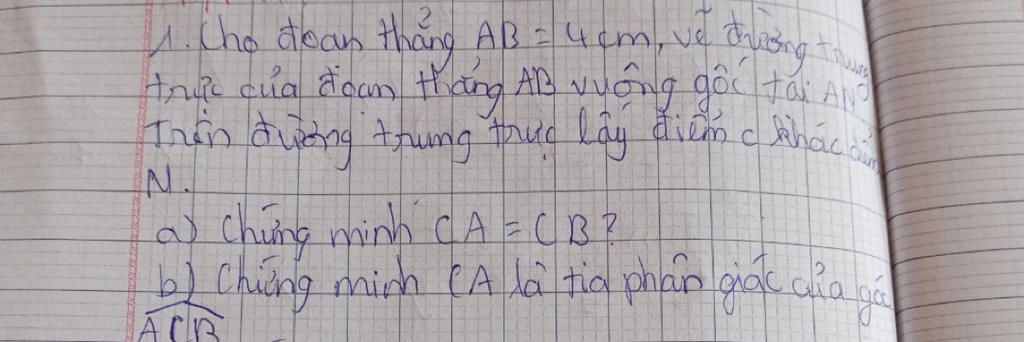 1. Cho đoạn thẳng AB = 4cm, vẽ đường trung
trực của đoạn thẳng AB vuông góc tại
Trên đường trung trực lấy điểm C khác điểm
N.
a) Chứng minh CA = CB?
b) Chứng minh CA là tia phân giác của góc
ACB